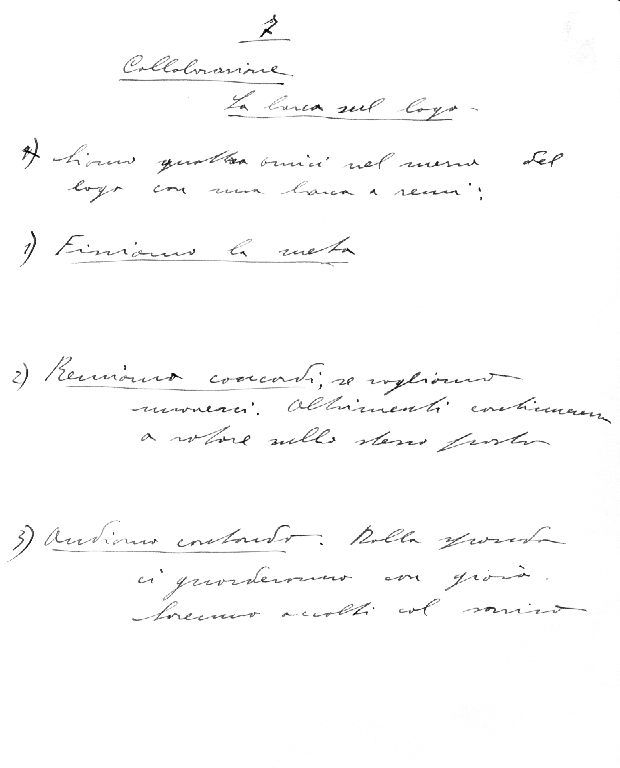 7
Collaborazione
La barca sul lago.
A) Siamo quattro amici nel mezzo del
lago con una barca a remi:
1) Fissiamo la meta
2) Remiamo concordi, se vogliamo
muoverci. Altrimenti continueremo
a rotare nello stesso posto
3) Andiamo cantando. Dalla sponda
ci guarderanno con gioia.
Saremo accolti col sorriso